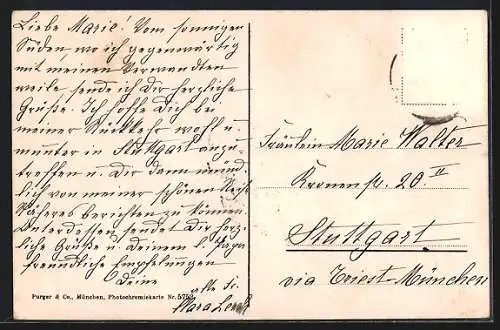 Liebe Marie! Vom sonnigen
Süden, wo ich gegenwärtig
mit meinen Verwandten
weile, sende ich Dir herzliche
Grüße. Ich hoffe Dich bei
meiner Rückkehr wohl u.
munter in Stuttgart anzu-
treffen u. Dir dann münd-
lich von meiner schönen Reise
Näheres berichten zu können.
Unterdessen sendet Dir herz-
liche Grüße u. Deinem l. Papa
freundliche Empfehlungen
Deine
Purger & Co., München, Photochromiekarte Nr.
Fräulein Marie Walter
Kronenstr. 20. II
Stuttgart
via Triest-München